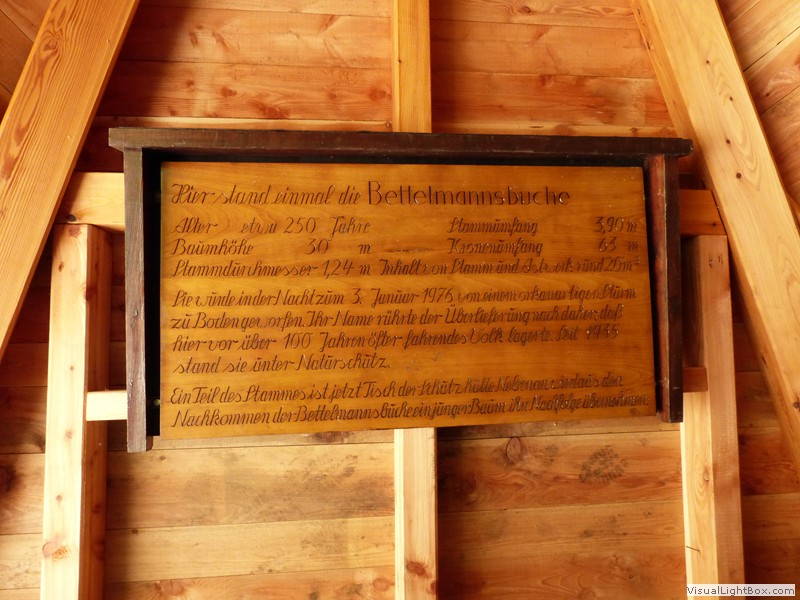 Hier stand einmal die Bettelmannsbuche
Alter etwa 250 Jahre Stammumfang 3,90 m
Baumhöhe 30 m Kronenumfang 63 m
Stammdurchmesser 1,24 m Inhalt von Stamm und Astwerk rund 26 m³
Sie wurde in der Nacht zum 3. Januar 1976 von einem orkanartigen Sturm
zu Boden geworfen. Ihr Name rührte der Überlieferung nach daher, daß
hier vor über 100 Jahren öfter fahrendes Volk lagerte. Seit
stand sie unter Naturschutz.
Ein Teil des Stammes ist jetzt Tisch der Schutzhütte. Nebenan wird aus den
Nachkommen der Bettelmannsbuche ein junger Baum ihr Nachfolge übernehmen.
VisualLightBox.com